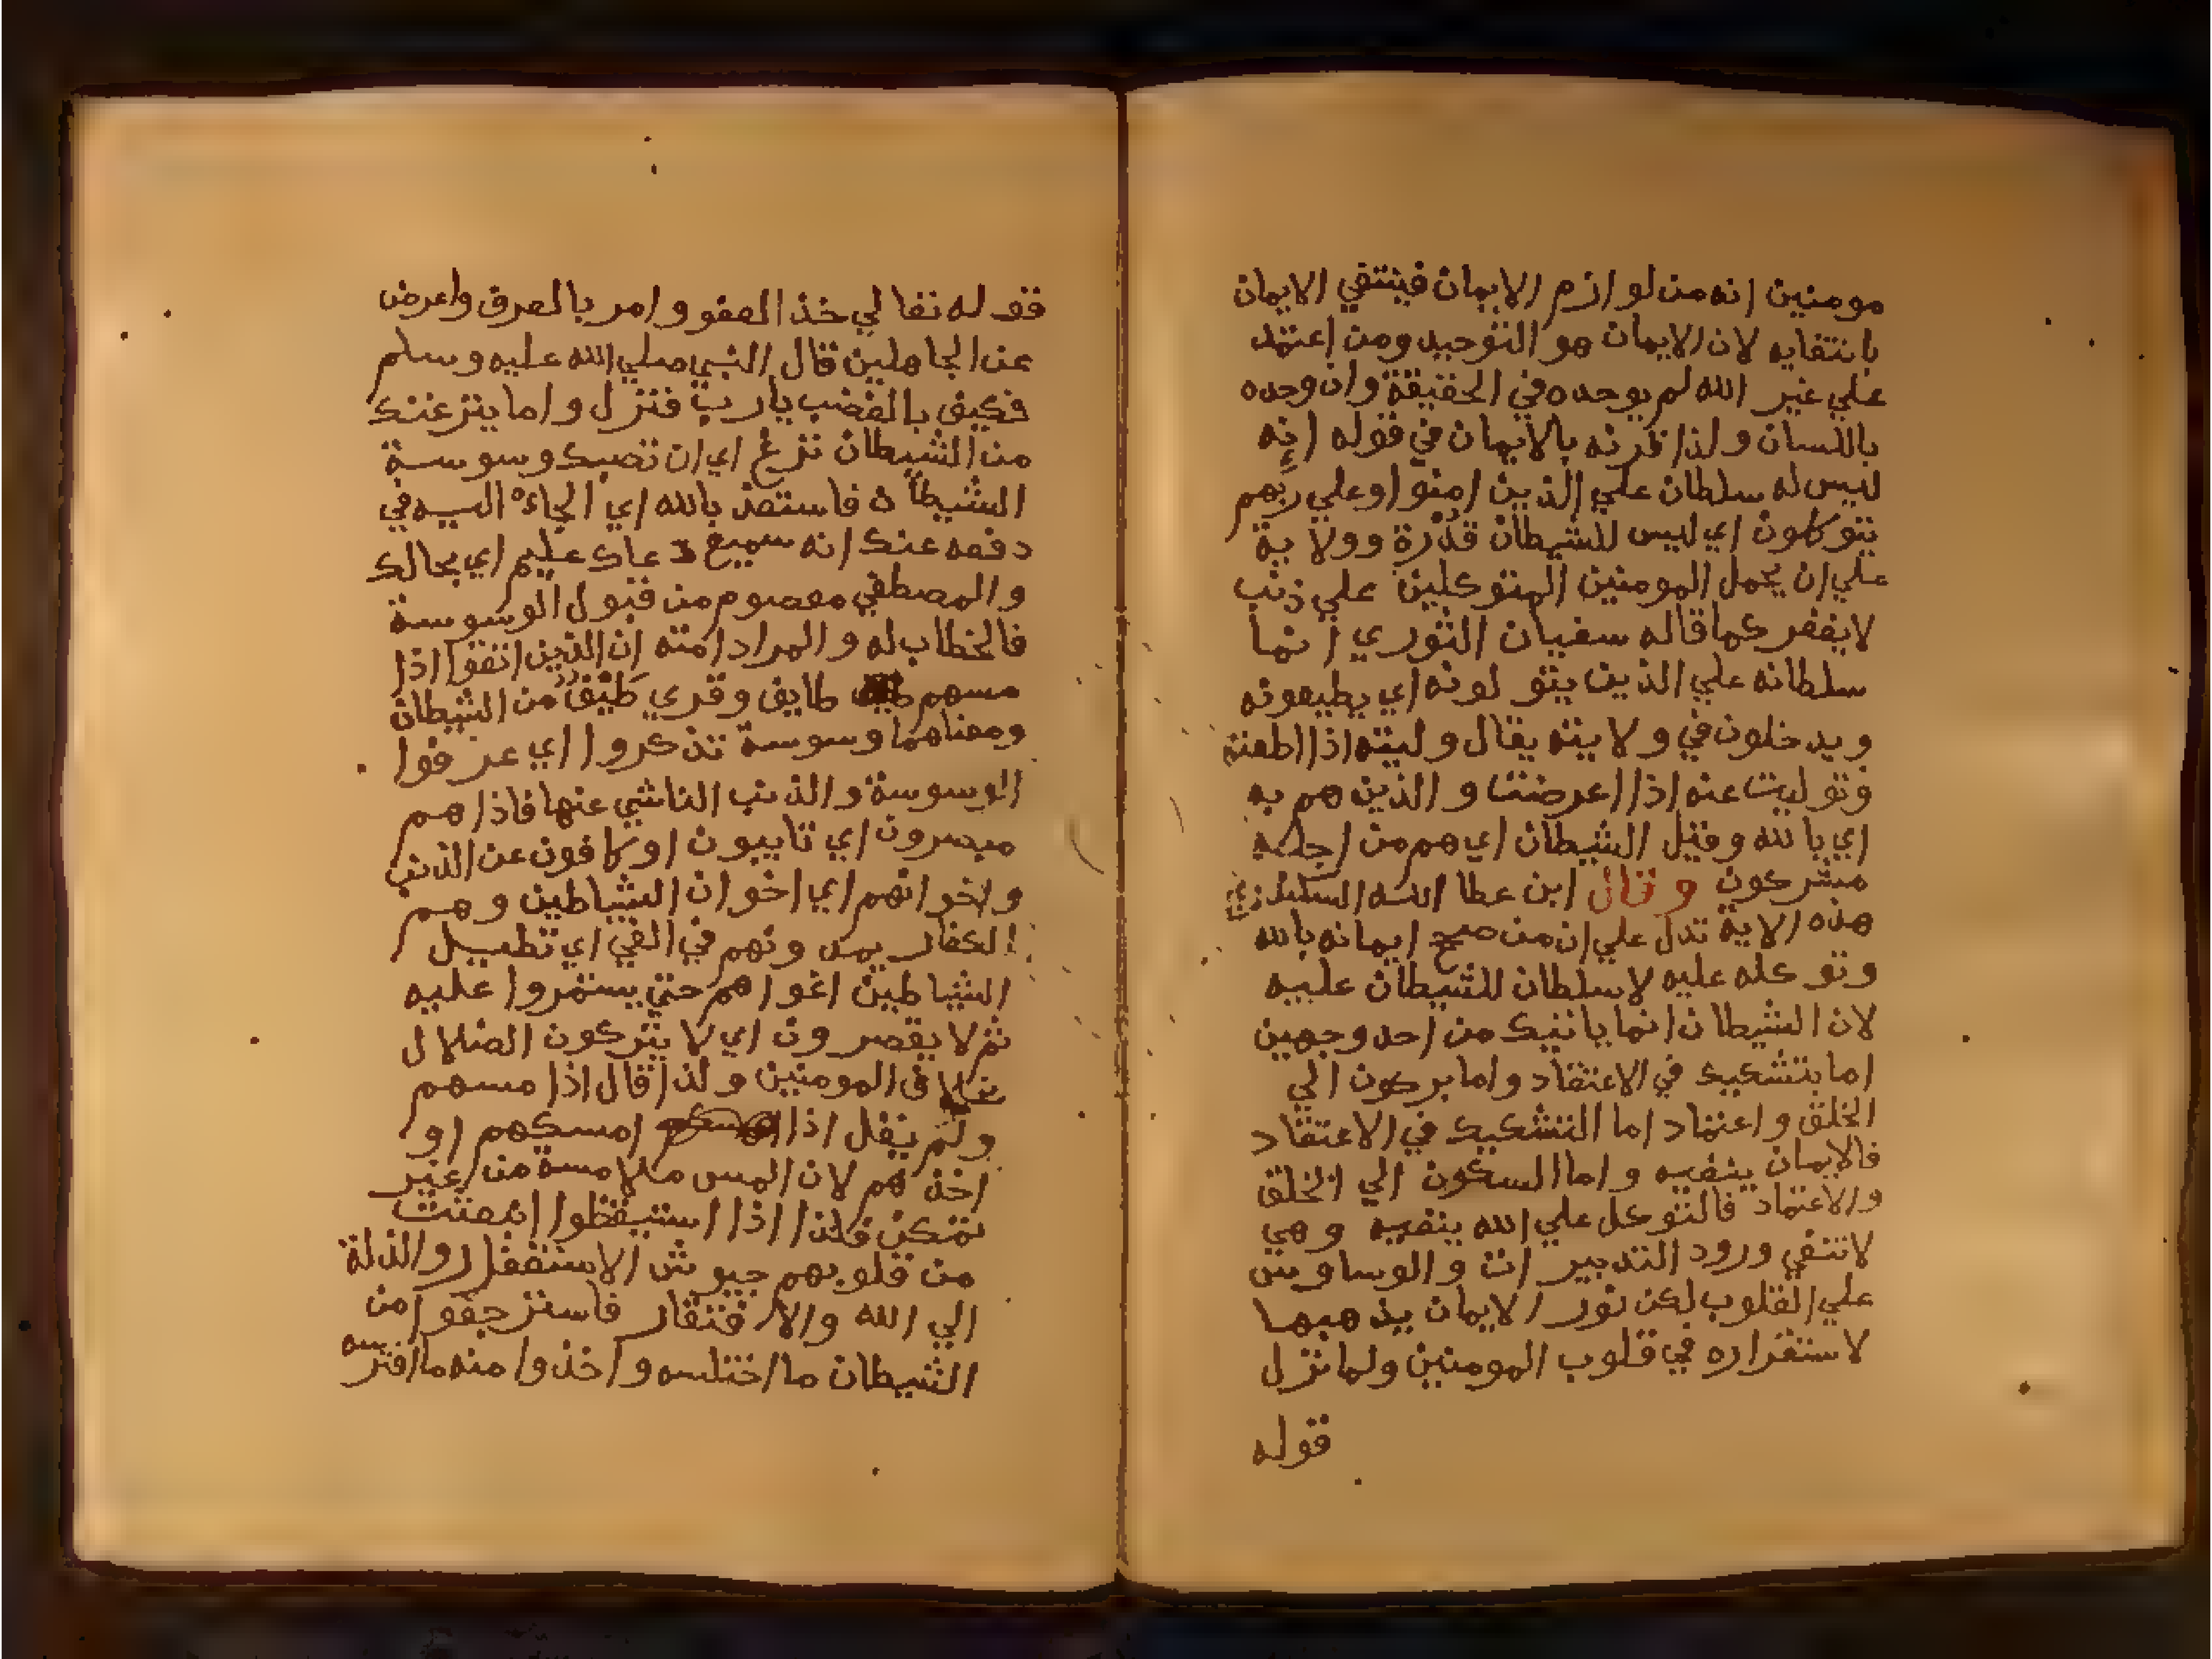 مومنين انه من لوازم الايمان فينتفي الايمان
بانتفايه لان الايمان هو التوحيد ومن اعتمد
علي غير الله لم يوحده في الحقيقة وان وحده
باللسان ولذا قرنه بالايمان في قوله انه
ليس له سلطان علي الذين امنوا وعلي ربهم
يتوكلون اي ليس للشيطان قدرة وولاية
علي ان يحمل المومنين المتوكلين علي ذنب
لا يغفر كما قاله سفيان الثوري انما
سلطانه علي الذين يتولونه اي يطيعونه
ويدخلون في ولايته يقال وليته اذا اطعته
وتوليت عنه اذا اعرضت والذين هم به
اي بالله وقيل الشيطان اي هم من اجله
مشركون وقال ابن عطا الله السكندري
هذه الاية تدل علي ان من صح ايمانه بالله
وتوكله عليه لا سلطان للشيطان عليه
لان الشيطان انما ياتيك من احد وجهين
اما بتشكيك في الاعتقاد واما بركون الي
الخلق واعتماد اما التشكيك في الاعتقاد
فالايمان ينفيه واما السكون الي الخلق
والاعتماد فالتوكل علي الله ينفيه وهي
لا تنتفي ورود التدبيرات والوساوس
علي القلوب لكن نور الايمان يذهبها
لاستقراره في قلوب المومنين ولما نزل
قوله
قوله تعالي خذ العفو وامر بالعرف واعرض
عن الجاهلين قال النبي صلي الله عليه وسلم
فكيف بالغضب يا رب فنزل واما ينزغنك
من الشيطان نزغ اي ان تصبك وسوسة
الشيطان فاستعذ بالله اي الجاء اليه في
دفعه عنك انه سميع دعاك عليم اي بحالك
والمصطفي معصوم من قبول الوسوسة
فالخطاب له والمراد امته ان الذين اتقوا اذا
مسهم طايف وقري طيف من الشيطان
ومعناهما وسوسة تذكروا اي عرفوا
الوسوسة والذنب الناشي عنها فاذا هم
مبصرون اي تايبون او كافون عن الذنب
واخوانهم اي اخوان الشياطين وهم
الكفار يمدونهم في الغي اي تطيل
الشياطين اغواهم حتي يستمروا عليه
ثم لا يقصرون اي لا يتركون الضلال
بخلاف المومنين ولذا قال اذا مسهم
ولم يقل اذا امسكهم او
اخذهم لان المس ملامسة من غير
تمكن فلذا اذا استيقظوا انبعثت
من قلوبهم جيوش الاستغفار والذلة
الي الله والافتقار فاسترجعوا من
الشيطان ما اختلسه واخذوا منه ما افترسه